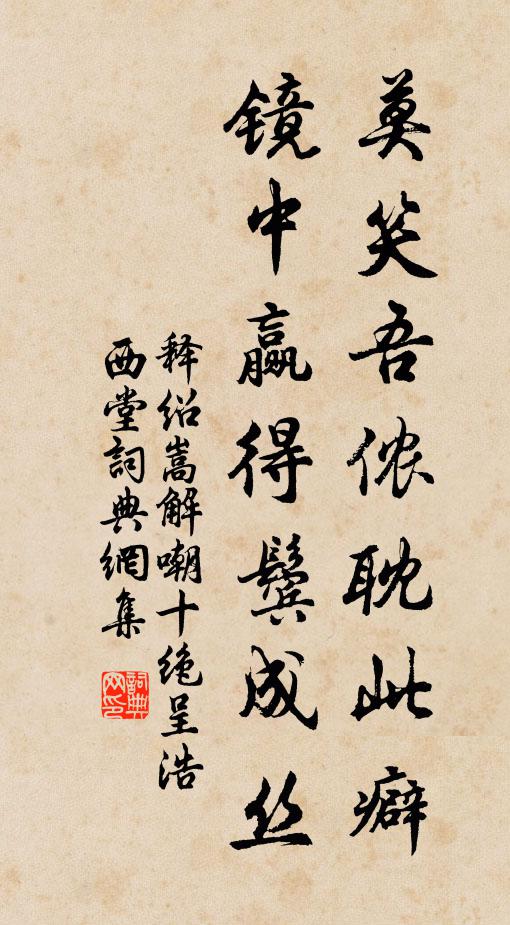 莫笑吾侬耽此癖
镜中赢得鬓成丝
释绍嵩解嘲十绝呈浩
西堂詞典網集
詞典网印